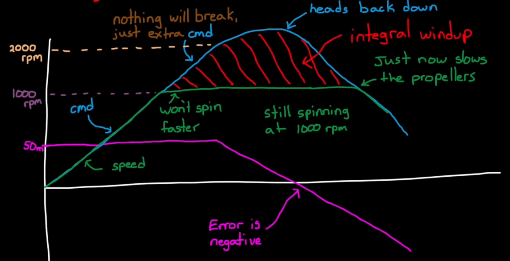 nothing will break,
just extra cmd
heads back down
2000
rpm
cmd
integral windup
Just now slows
the propellers
1000
rpm
cmd
won't spin
faster
Still spinning
at 1000 rpm
50m
speed
Error is
negative